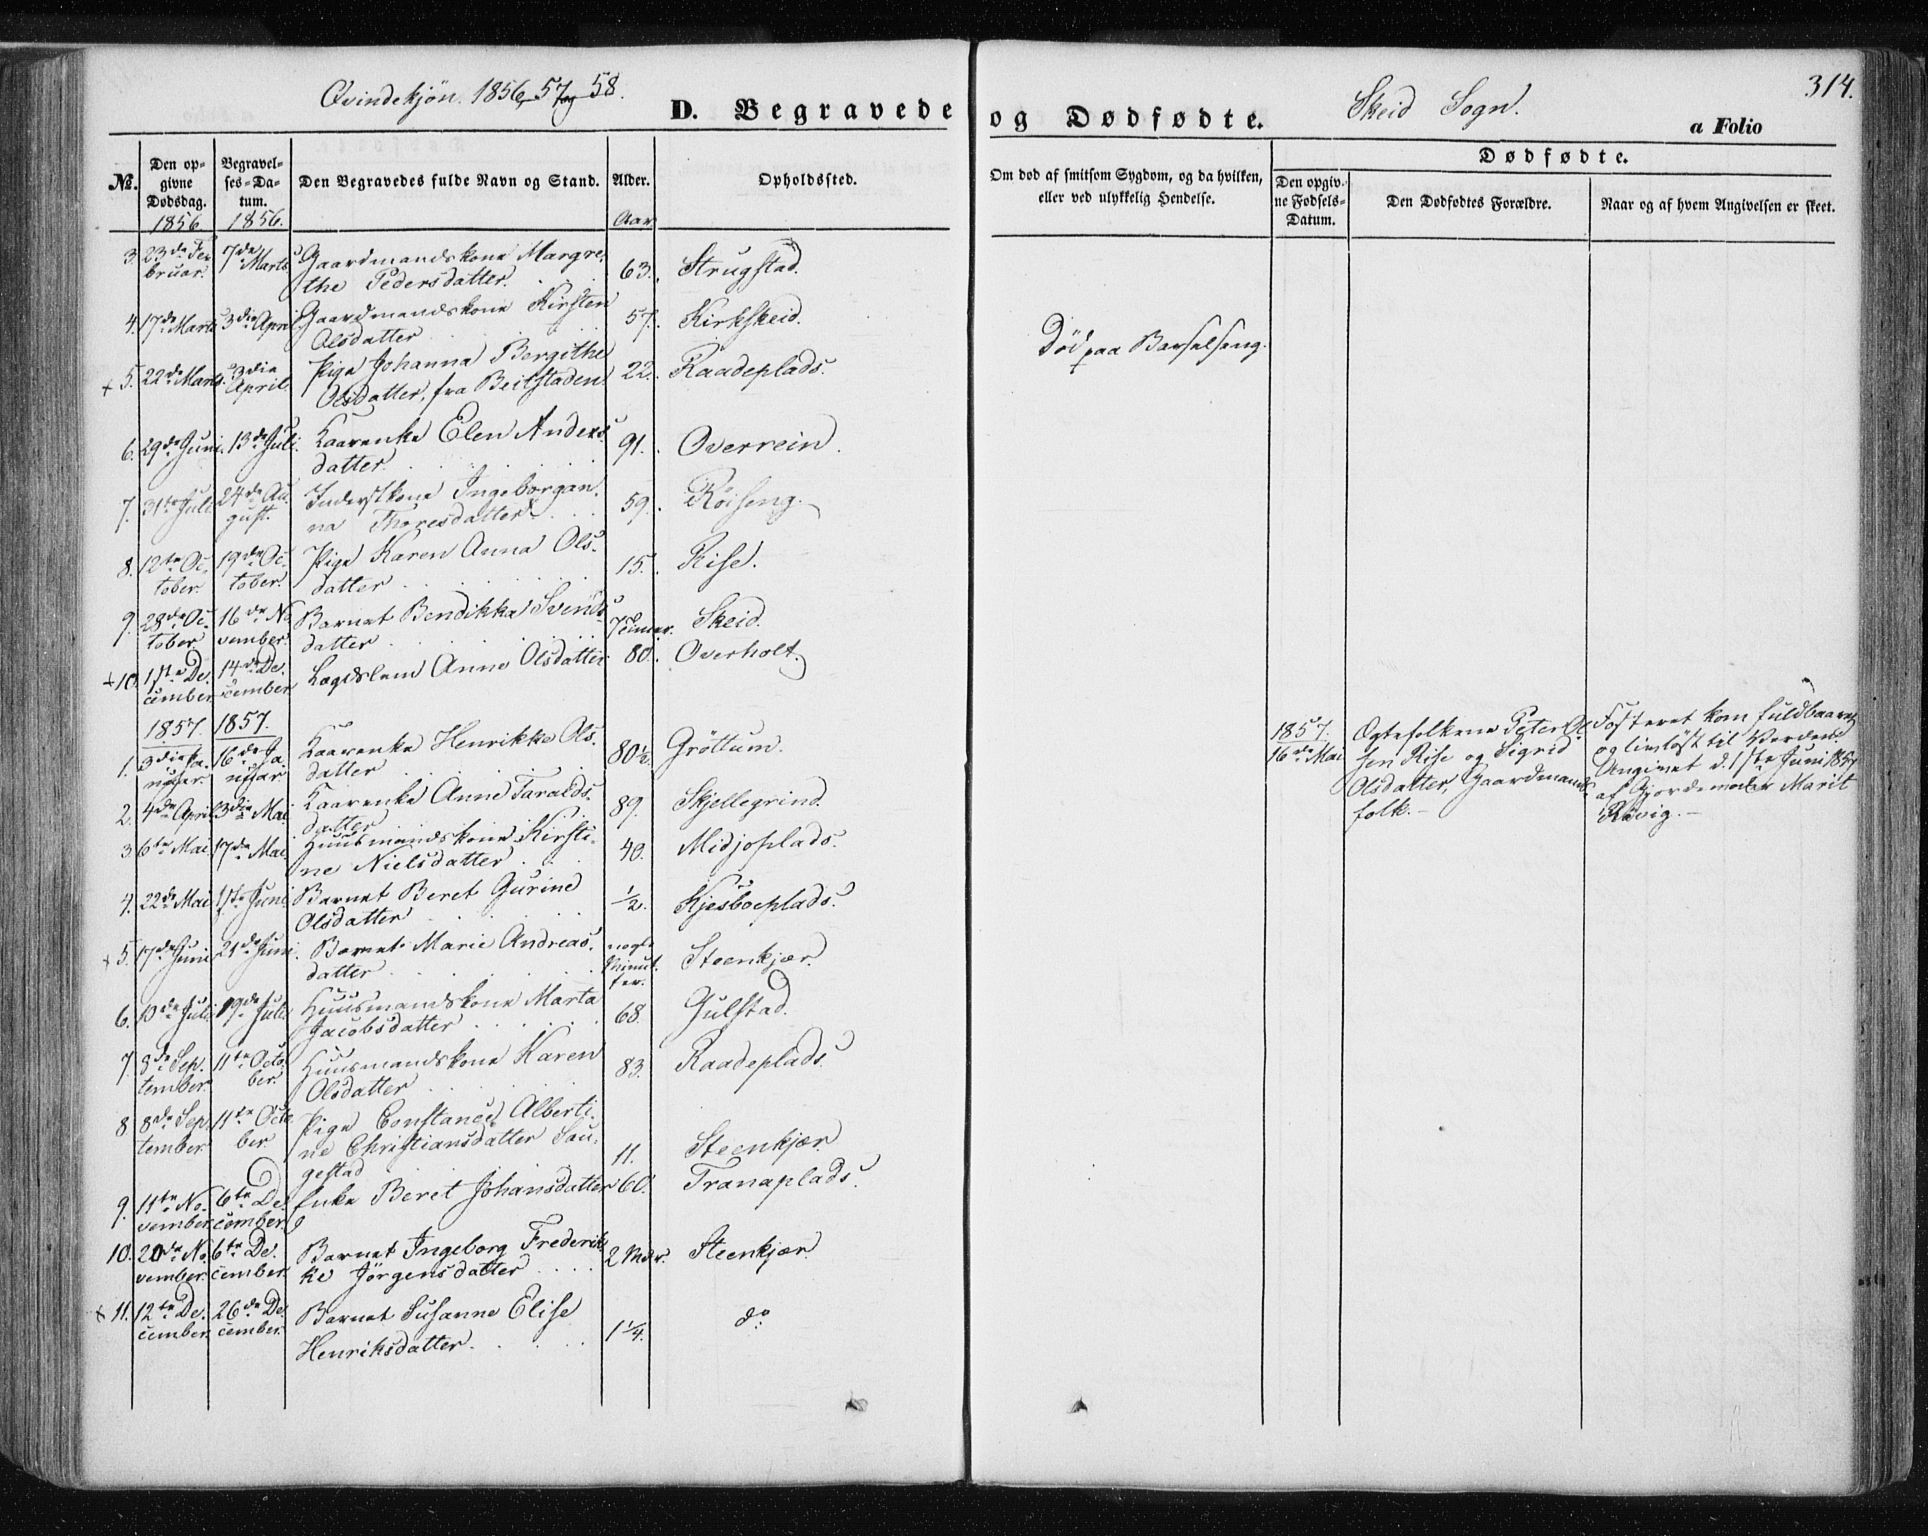 Qvindekjön. 1856, 57 og 58.
D. Begravede og Dødfødte.
Skeid Sogn.
314.
a Folio
No.
Den opgivne Dødsdag.
Begravelses-Datum.
Den Begravedes fulde Navn og Stand.
Alder.
Opholdssted.
Om død af smitsom Sygdom, og da hvilken, eller ved ulykkelig Hendelse.
Dødfødte.
Den opgivne Fødsels-Datum.
Den Dødfødtes Forældre.
Naar og af hvem Angivelsen er skeet.
1856 1856. Aar
3. 23de Februar. 7de Marts Gaardmandskone Margrethe Pedersdatter. 63. Strugstad.
4. 17de Marts 3die April Gaardmandskone Kirsten Olsdatter 57. Kirkskeid.
+ 5. 22de Marts. 3die April Pige Johanna Bergithe Olsdatter, fra Beitstaden 22. Raadeplads. Död paa Barselseng.
6. 29de Juni. 13de Juli. Kaarenke Elen Andersdatter 91. Overrein.
7. 31te Juli 24de August. Inderstkone Ingeborganna Thoresdatter 59. Röiseng.
8. 12te October. 19de October. Pige Karen Anna Olsdatter 15. Rise.
9. 28de October 16de November. Barnet Bendikka Svendsdatter 7 Timer. Skeid.
+ 10. 1ste December 14de December Lægdslem Anne Olsdatter 80. Overholt.
1857. 1857.
1. 3die Januar. 16de Januar Kaarenke Henrikke Olsdatter 80½ Gröttum.
2. 4de April 3die Mai. Kaarenke Anne Taraldsdatter 89. Skjellegrind.
3. 6te Mai. 17de Mai. Huusmandskone Kirstine Nielsdatter 40. Midjoplads.
4. 22de Mai 1ste Juni Barnet Beret Gurine Olsdatter ½. Kjesboeplads.
+ 5. 17de Juni 21de Juni. Barnet Marie Andreasdatter nogle Minutter. Steenkjær.
6. 10de Juli 19de Juli Huusmandskone Marta Jacobsdatter 68. Gulstad.
7. 8de September. 11te October. Huusmandskone Karen Olsdatter 83. Raadeplads.
8 8de September. 11te October Pige Constance Albertine Christiansdatter Saugestad 11. Steenkjær.
9. 11te November. 6te December. Enke Beret Johansdatter 60. Tranaplads.
10. 20de November. 6te December. Barnet Ingeborg Frederikke Jörgensdatter 2 Mdr. Steenkjær.
+ 11. 12te December. 26de December. Barnet Susanne Elise Henriksdatter 1¼. do.
1857.
16de Mai
Ægtefolkene Peter Olsen Rise og Sigrid Olsdatter, Gaardmandsfolk.
Fosteret kom fuldbaaret og livlöst til Verden. Angivet d. 1ste Juni 1857 af Gjordemoder Marit Rövig.